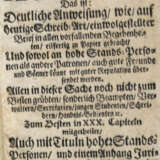 Das ist:
Deutliche Anweisung, wie auf
heutige Schreib-Art, ein wolgestelter
Brief in allen vorfallenden Begebenhei-
ten, zifferlig zu Papier gebracht
Und sowol an hohe Stands-Perso-
nen als andere Patronen, auch gute Freunde
und Gönner könne mit guter Reputation über-
sendet werden.
Allen in dieser Sache noch nicht zum
Besten geübten, sonderlich Beampten, Ver-
waltern, Secretarien, jungen Scribenten, Schrei-
bern, Handels-Bedienten etc.
Zum Besten in XXX. Capiteln
mitgetheilet,
Auch mit Tituln hoher Stands-
Personen, und einem Anhang Juri-